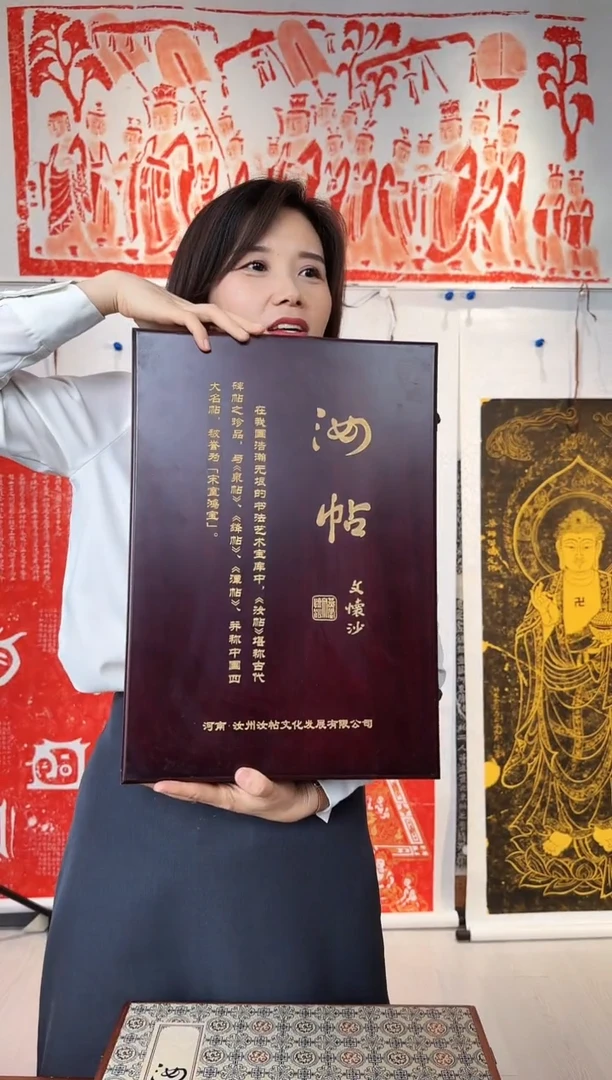 汝帖
文懷沙
在我国浩瀚无垠的书法艺术宝库中，《汝帖》堪称古代
碑帖之珍品，与《泉帖》、《绛帖》、《潭帖》、并称中国四
大名帖，被誉为「宋室鸿宝」。
河南·汝州汝帖文化发展有限公司
汝